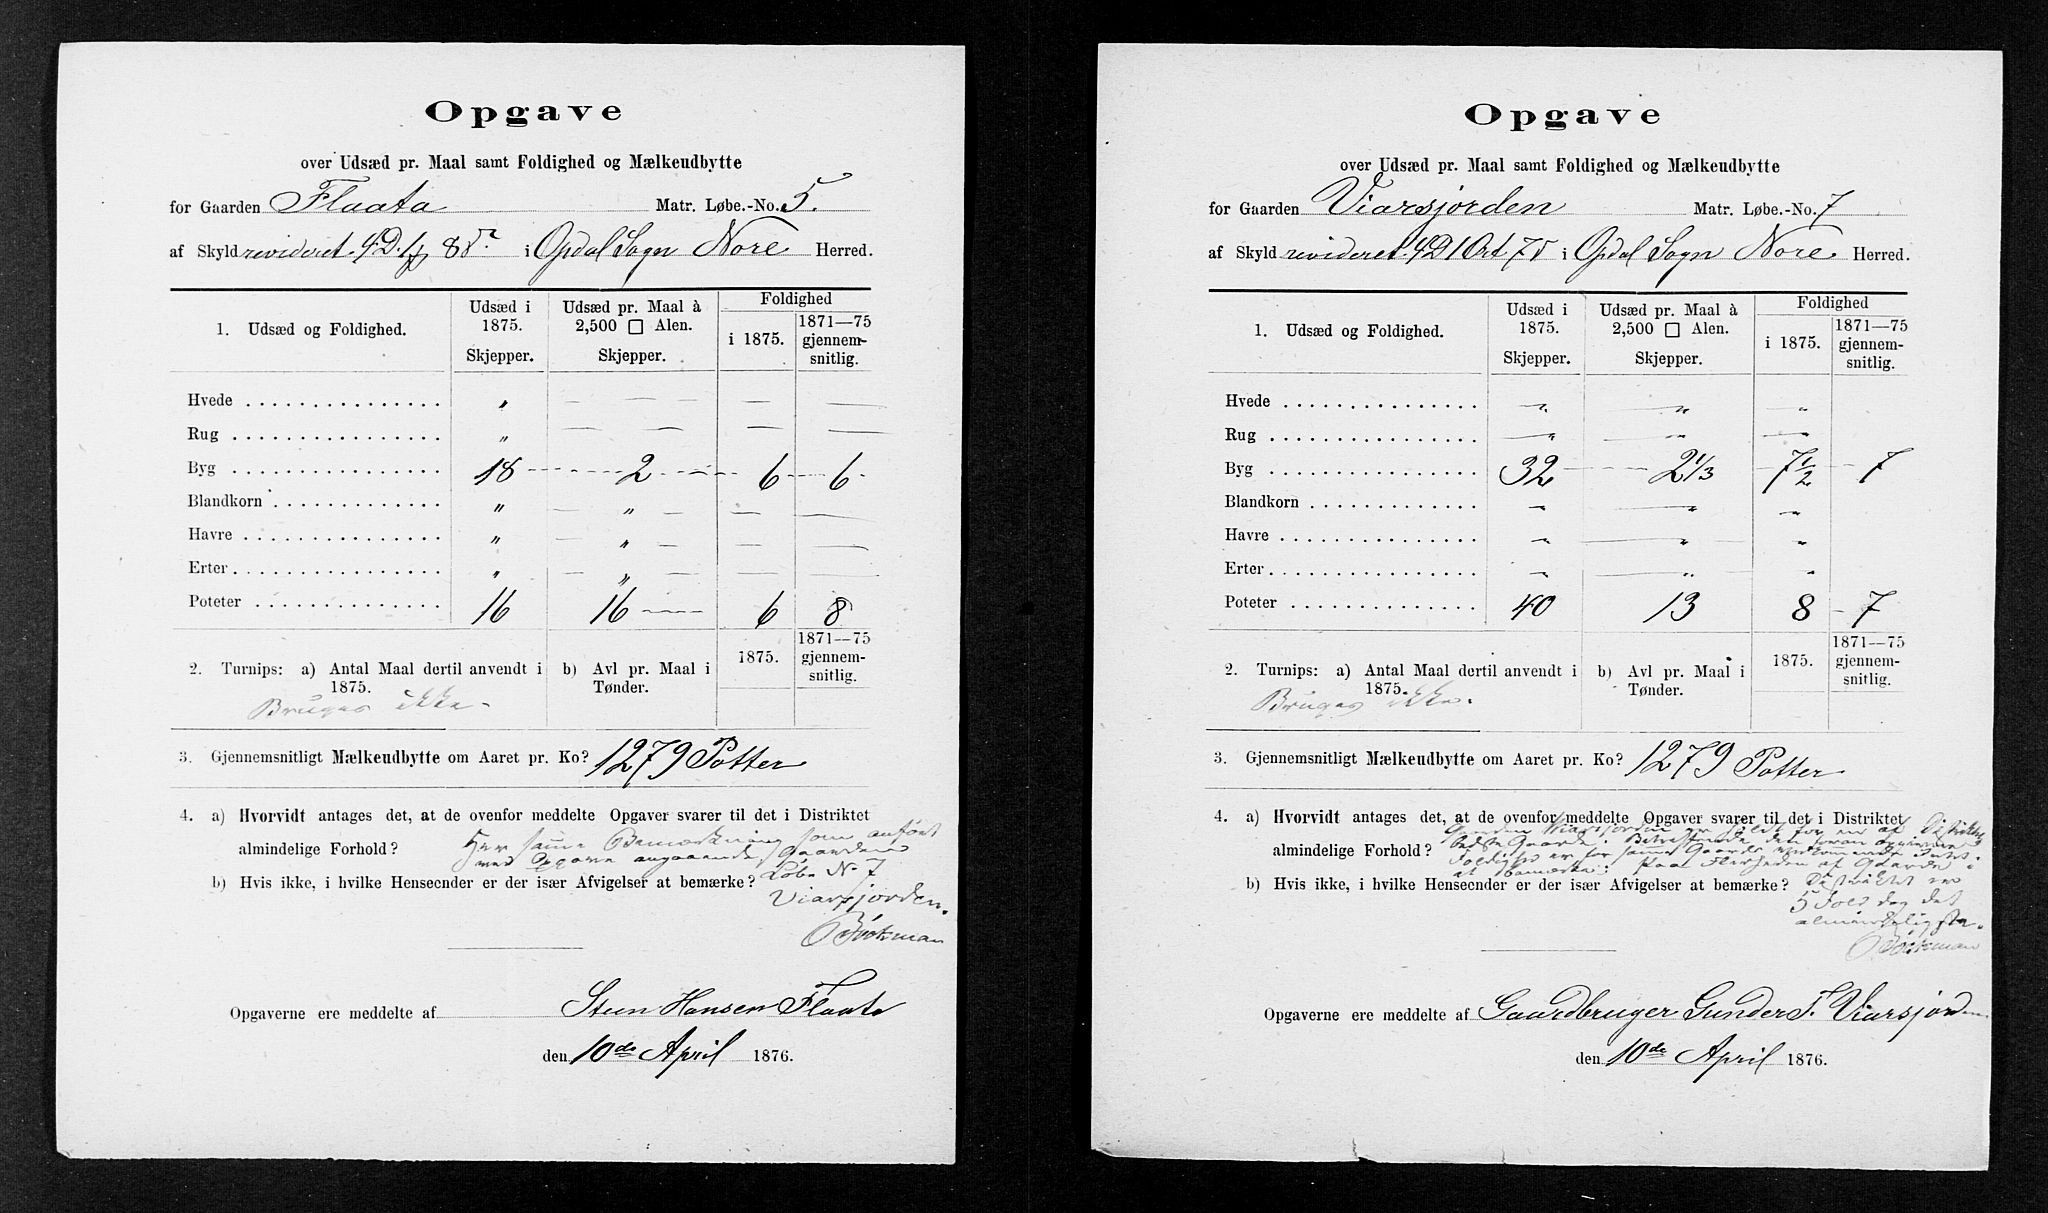 Opgave
over Udsæd pr. Maal samt Foldighed og Mælkeudbytte
for Gaarden Flaata Matr. Løbe.-No. 5.
af Skyld revideret 4 D. 1 8 i Opdal Sogn Nore Herred.
1. Udsæd og Foldighed. Udsæd i 1875. Skjepper. Udsæd pr. Maal à 2,500 □ Alen. Skjepper. Foldighed i 1875. 1871—75 gjennemsnitlig.
Hvede . . . . . . . . . . . . . . . „ — — — — —
Rug . . . . . . . . . . . . . . . . „ — — — — —
Byg . . . . . . . . . . . . . . . . 18 2 6 6
Blandkorn . . . . . . . . . . . . . „ — „ — — —
Havre . . . . . . . . . . . . . . . „ — „ — — —
Erter . . . . . . . . . . . . . . . „ — „ — — —
Poteter . . . . . . . . . . . . . . 16 16 6 8
2. Turnips: a) Antal Maal dertil anvendt i 1875. b) Avl pr. Maal i Tønder. 1875. 1871—75 gjennemsnitlig.
Bruges ikke.
3. Gjennemsnitligt Mælkeudbytte om Aaret pr. Ko? 1279 Potter
4. a) Hvorvidt antages det, at de ovenfor meddelte Opgaver svarer til det i Distriktet
almindelige Forhold? Her samme Bemærkning som anført
med Opgave angaaende Gaarden
b) Hvis ikke, i hvilke Hensecnder er der især Afvigelser at bemærke? Løbe No 7
Viarsjorden.
Bøckman
Opgaverne ere meddelte af Steen Hansen Flaata
den 10de April 1876.
Opgave
over Udsæd pr. Maal samt Foldighed og Mælkeudbytte
for Gaarden Viarsjorden Matr. Løbe.-No. 7
af Skyld revideret 4 D 1 Ort 7 i Opdal Sogn Nore Herred.
1. Udsæd og Foldighed. Udsæd i 1875. Skjepper. Udsæd pr. Maal à 2,500 □ Alen. Skjepper. Foldighed i 1875. 1871—75 gjennemsnitlig.
Hvede . . . . . . . . . . . . . . . „ „ „
Rug . . . . . . . . . . . . . . . . „ „ „
Byg . . . . . . . . . . . . . . . . 32 2 1/3 7 1/2 7
Blandkorn . . . . . . . . . . . . . „ „ „
Havre . . . . . . . . . . . . . . . „ „ „
Erter . . . . . . . . . . . . . . . „ „
Poteter . . . . . . . . . . . . . . 40 13 8 7
2. Turnips: a) Antal Maal dertil anvendt i 1875. b) Avl pr. Maal i Tønder. 1875. 1871—75 gjennemsnitlig.
Bruges ikke.
3. Gjennemsnitligt Mælkeudbytte om Aaret pr. Ko? 1279 Potter
4. a) Hvorvidt antages det, at de ovenfor meddelte Opgaver svarer til det i Distriktet
Gaarden Viarsjorden er holdt for en af Distriktets
almindelige Forhold? bedste Gaarde.
Foldighed er for samme Gaards
at bemærke: Paa Flerheden af Gaarde i
b) Hvis ikke, i hvilke Hensecnder er der især Afvigelser at bemærke? Distriktet er
5 Fold dog det
almindeligste.
Bøckman
Opgaverne ere meddelte af Gaardbruger Gunder T. Viarsjorden
den 10de April 1876.